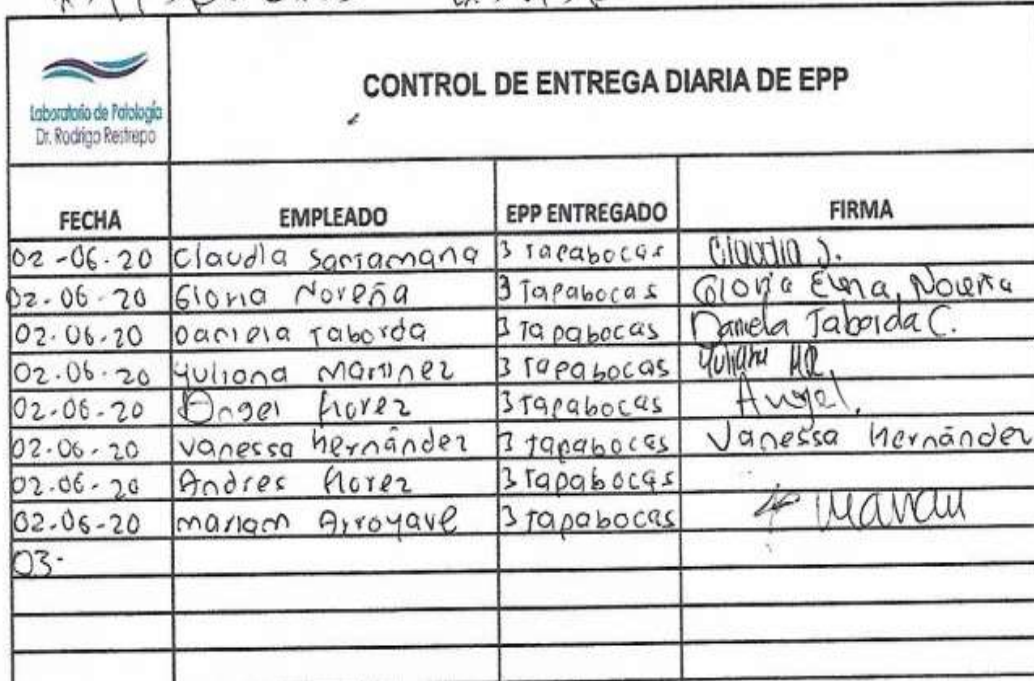 Laboratorio de Patología
Dr. Rodrigo Restrepo
CONTROL DE ENTREGA DIARIA DE EPP
FECHA EMPLEADO EPP ENTREGADO FIRMA
02-06-20 Claudia Santamana 3 Tapabocas Claudia S.
02-06-20 Gloria Noreña 3 Tapabocas Gloria Elena Noreña
02-06-20 Daniela Taborda 3 Tapabocas Daniela Taborda C.
02-06-20 Yuliana Martinez 3 Tapabocas Yuliana
02-06-20 Angel Florez 3 Tapabocas Angel.
02-06-20 Vanessa Hernández 3 Tapabocas Vanessa Hernánder
02-06-20 Andres Florez 3 Tapabocas
02-06-20 Mariam Arroyave 3 Tapabocas
03-